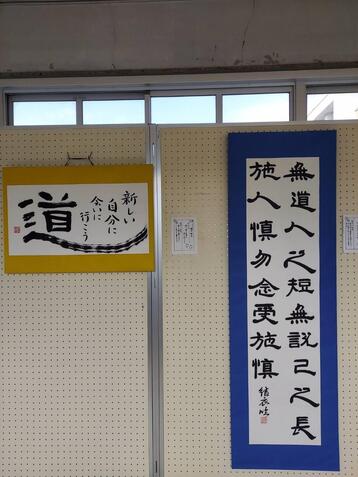 新しい
自分に
会いに
行こう
道
無道人之短無説己之長
施人慎勿念受施慎